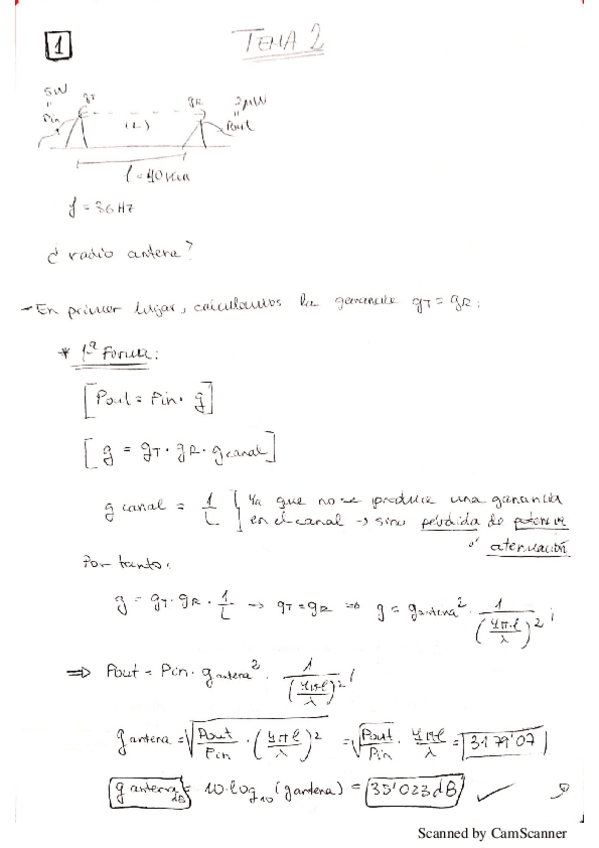 1
TEMA 2
5W
"
Pin
gT
gR
2μW
"
Pout
(L)
l = 40 km
f = 3GHz
¿ radio antena?
- En primer lugar, calculamos la ganancia gT = gR:
* 1ª Forma:
[Pout = Pin · g]
[g = gT · gR · gcanal]
gcanal = 1/L } Ya que no se produce una ganancia
en el canal → sino pérdida de potencia
o atenuación
Por tanto:
g = gT · gR · 1/L → gT = gR ⇒ g = gantena² · 1/(4π·l/λ)² ;
⇒ Pout = Pin · gantena² · 1/(4π·l/λ)² ;
gantena = √(Pout/Pin · (4πl/λ)²) = √(Pout/Pin) · 4πl/λ = 3179'07
gantena dB = 10·log10 (gantena) = 35'023dB ✓
Scanned by CamScanner